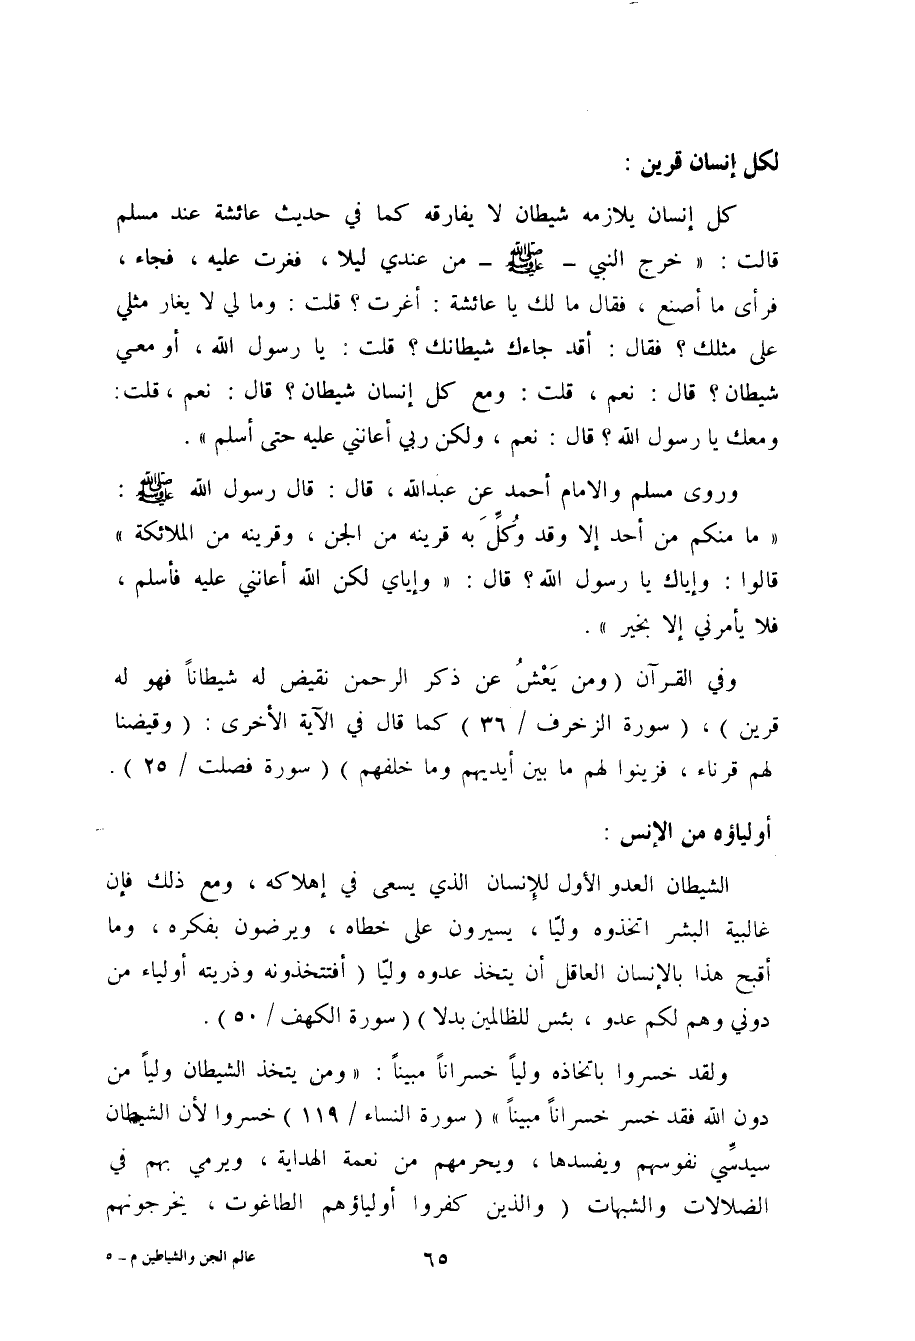 لكل إنسان قرين :
كل إنسان يلازمه شيطان لا يفارقه كما في حديث عائشة عند مسلم
قالت : « خرج النبي – ﷺ – من عندي ليلا ، فغرت عليه ، فجاء ،
فرأى ما أصنع ، فقال ما لك يا عائشة : أغرت ؟ قلت : وما لي لا يغار مثلي
على مثلك ؟ فقال : أقد جاءك شيطانك ؟ قلت : يا رسول الله ، أو معي
شيطان ؟ قال : نعم ، قلت : ومع كل إنسان شيطان ؟ قال : نعم ، قلت :
ومعك يا رسول الله ؟ قال : نعم ، ولكن ربي أعانني عليه حتى أسلم » .
وروى مسلم والامام أحمد عن عبدالله ، قال : قال رسول الله ﷺ :
« ما منكم من أحد إلا وقد وُكِّلَ به قرينه من الجن ، وقرينه من الملائكة »
قالوا : وإياك يا رسول الله ؟ قال : « وإياي لكن الله أعانني عليه فأسلم ،
فلا يأمرني إلا بخير » .
وفي القرآن ( ومن يَعْشُ عن ذكر الرحمن نقيض له شيطاناً فهو له
قرين ) ، ( سورة الزخرف / ٣٦ ) كما قال في الآية الأخرى : ( وقيضنا
لهم قرناء ، فزينوا لهم ما بين أيديهم وما خلفهم ) ( سورة فصلت / ٢٥ ) .
أولياؤه من الإنس :
الشيطان العدو الأول للإنسان الذي يسعى في إهلاكه ، ومع ذلك فإن
غالبية البشر اتخذوه وليّا ، يسيرون على خطاه ، ويرضون بفكره ، وما
أقبح هذا بالإنسان العاقل أن يتخذ عدوه وليّا ( أفتتخذونه وذريته أولياء من
دوني وهم لكم عدو ، بئس للظالمين بدلا ) ( سورة الكهف / ٥٠ ) .
ولقد خسروا باتخاذه ولياً خسراناً مبيناً : « ومن يتخذ الشيطان ولياً من
دون الله فقد خسر خسراناً مبيناً » ( سورة النساء / ١١٩ ) خسروا لأن الشيطان
سيدسِّي نفوسهم ويفسدها ، ويحرمهم من نعمة الهداية ، ويرمي بهم في
الضلالات والشبهات ( والذين كفروا أولياؤهم الطاغوت ، يخرجونهم
٦٥
عالم الجن والشياطين م – ٥